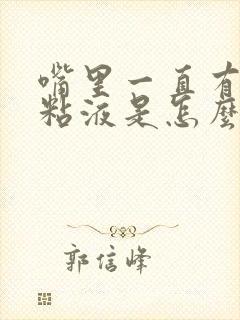 嘴里一直有
粘液是怎麼
郭信峰